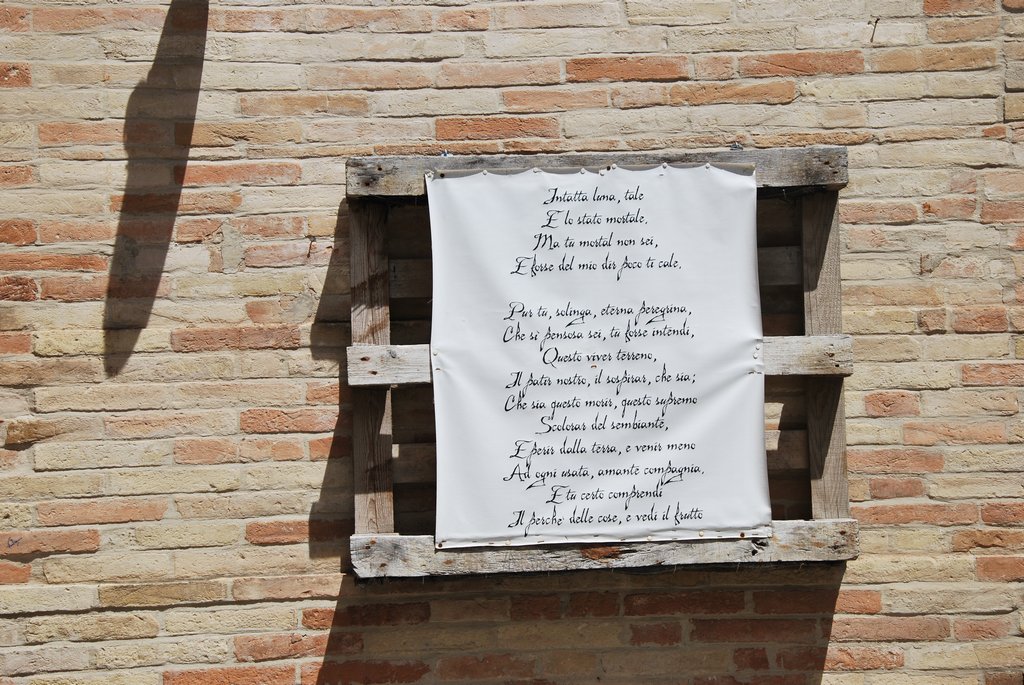 Intatta luna, tale
E lo stato mortale.
Ma tu mortal non sei,
E forse del mio dir poco ti cale.
Pur tu, solinga, eterna peregrina,
Che sì pensosa sei, tu forse intendi,
Questo viver terreno,
Il patir nostro, il sospirar, che sia;
Che sia questo morir, questo supremo
Scolorar del sembiante,
E perir dalla terra, e venir meno
Ad ogni usata, amante compagnia.
E tu certo comprendi
Il perche' delle cose, e vedi il frutto